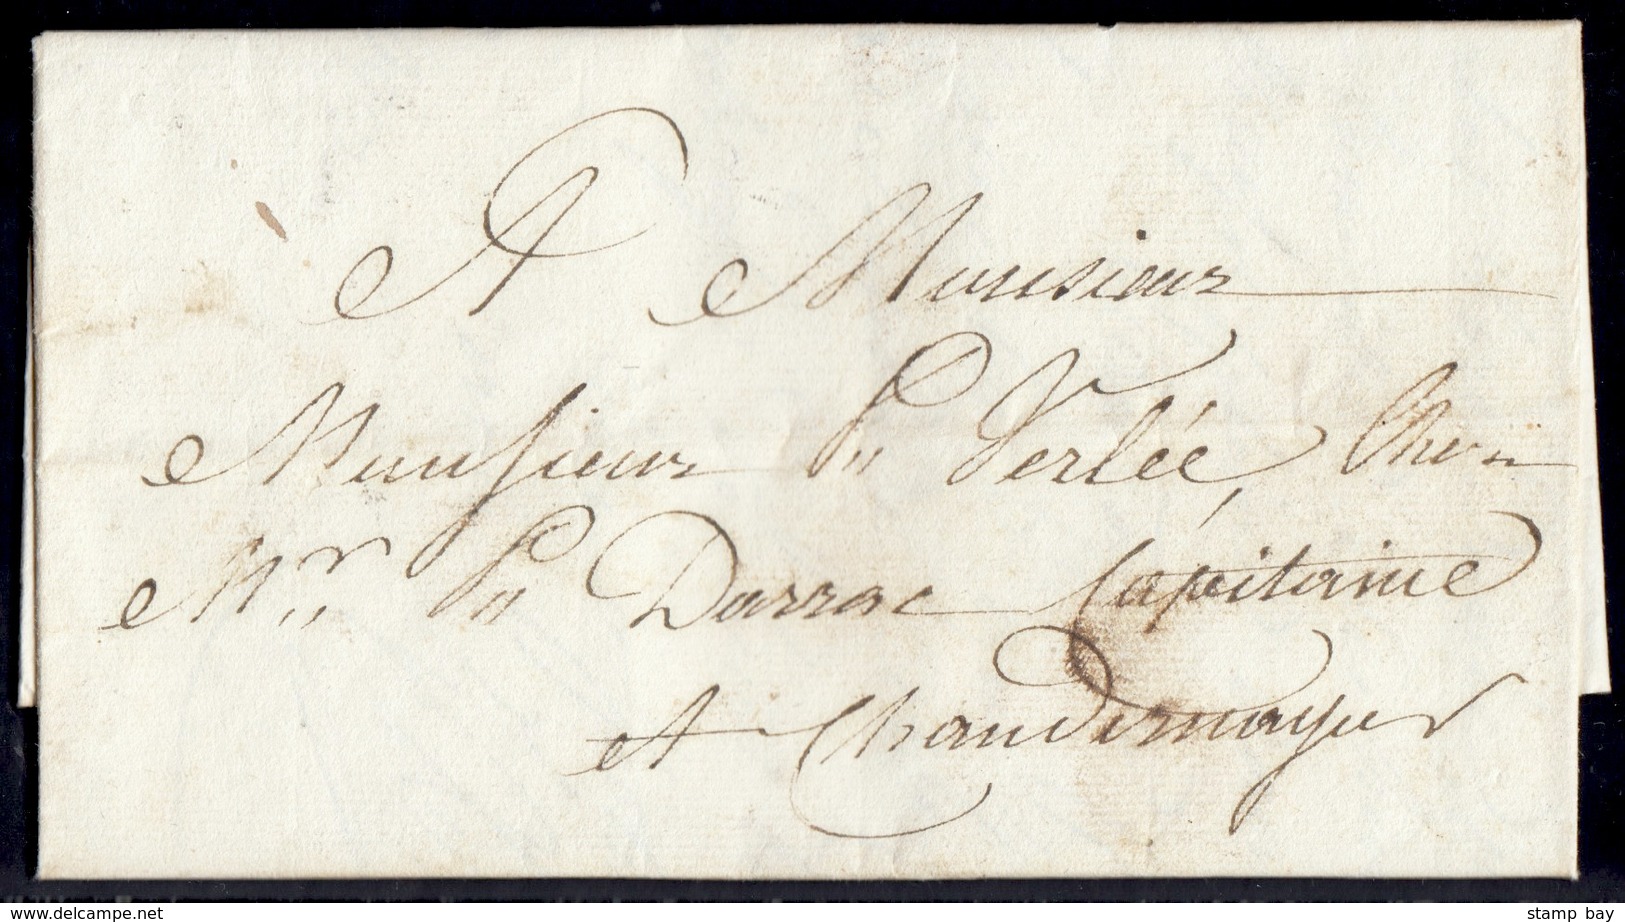 A Monsieur
Monsieur P" Verlée, Chez
Mr P" Darrac Capitaine
A Chandernagor
www.delcampe.net
stamp bay